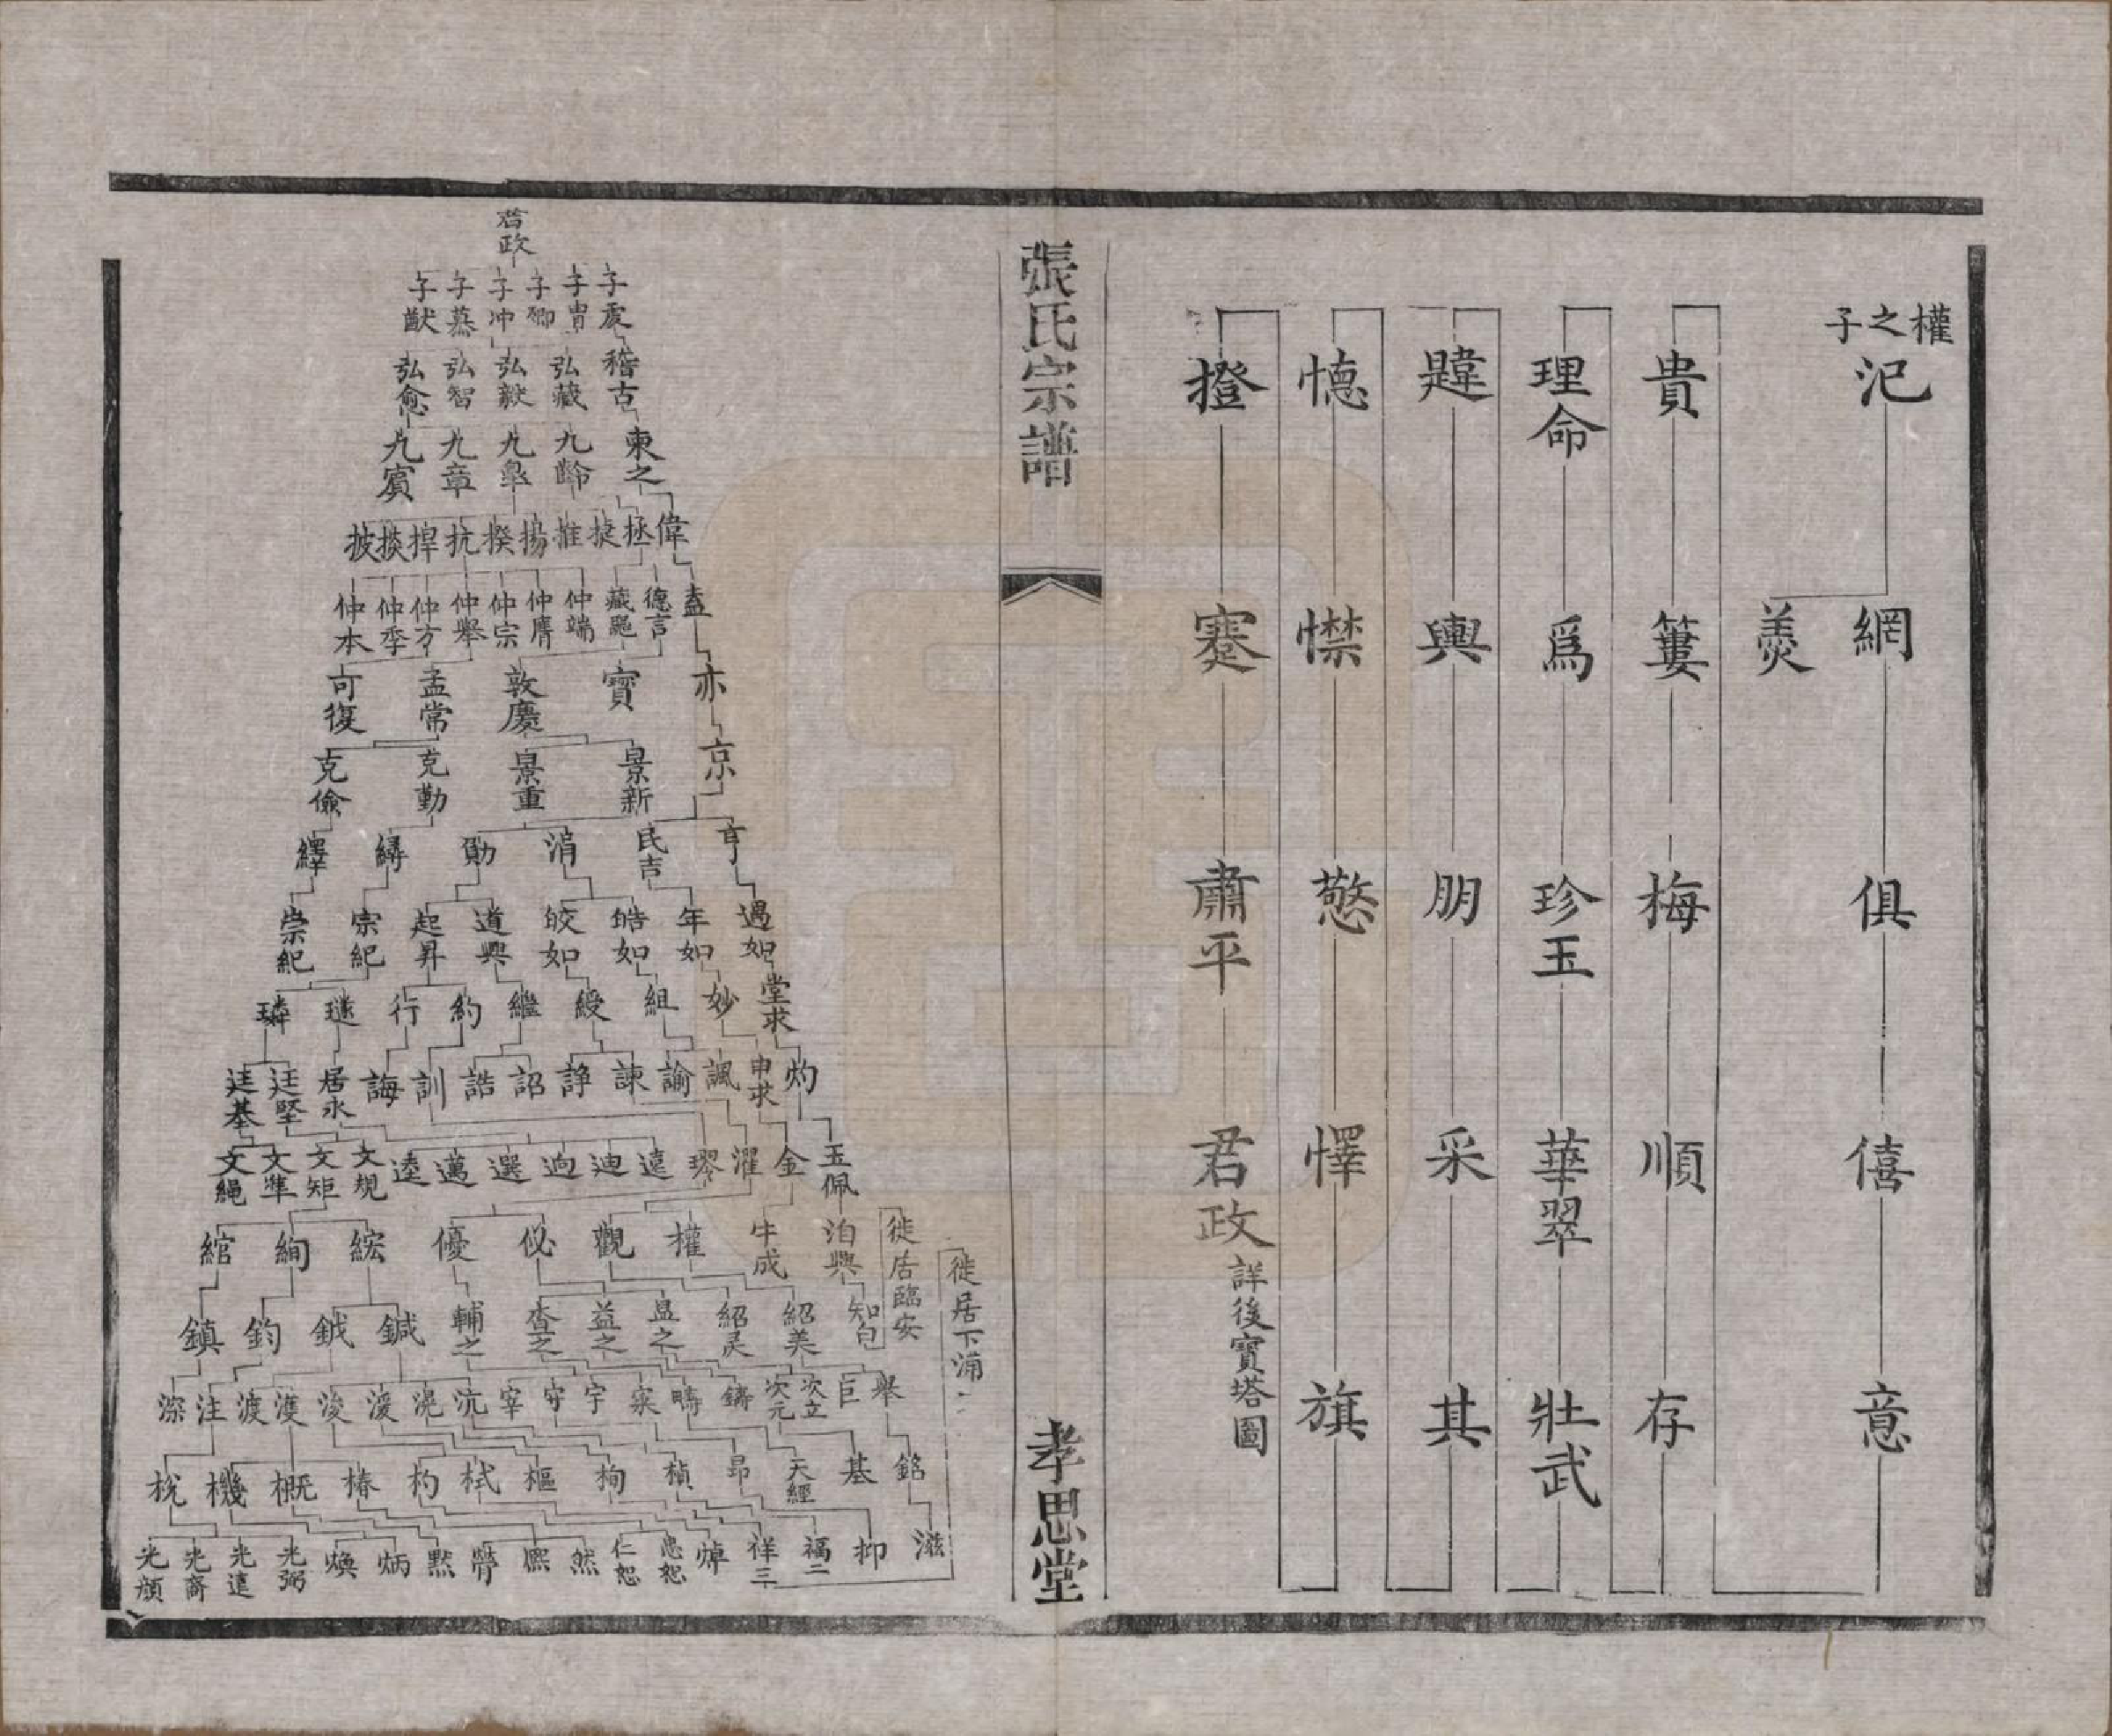 權之子
氾 網 俱 僖 意
羙
貴 簍 梅 順 存
理命 爲 珍玉 華翠 壯武
韙 輿 朋 采 其
憓 懔 憗 懌 旗
撜 蹇 肅平 君政 詳後寳塔圖
張氏宗譜
孝思堂
君政
子虔 子胄 子卿 子冲 子慕 子猷
稽古 弘藏 弘毅 弘智 弘愈
柬之 九齡 九皐 九章 九賔
偉 拯 捷 推 揚 揆 抗 捍 掞 披
盍 德言 藏器 仲端 仲膺 仲宗 仲舉 仲方 仲季 仲本
亦 寳 敦慶 孟常 可復
京 景新 景重 克勤 克儉
亨 民吉 涓 勛 繟 繹
遇如 年如 皓如 皎如 道興 起昇 宗紀 崇紀
堂求 妙 組 綬 繼 約 行 璲 璘
灼 申求 諷 諭 諫 諍 詔 誥 訓 誨 居永 廷堅 廷基
玉佩 金 濯 璆 遠 迪 逈 選 邁 逵 文規 文矩 文凖 文繩
徙居臨安 泊興 牛成 權 觀 佖 優 綋 絢 綰
徙居下浦
知白 紹美 紹灵 昷之 益之 杳之 輔之 鍼 鉞 鈞 鎮
舉 巨 次立 次元 鑄 疇 寀 宇 守 宰 沆 滉 湲 浚 濩 渡 注 深
銘 基 天經 昻 楨 栒 樞 栻 杓 椿 概 機 棁
滋 抑 福二 祥三 焯 忠恕 仁恕 然 熈 膋 㸃 炳 煥 光弼 光遠 光裔 光頠